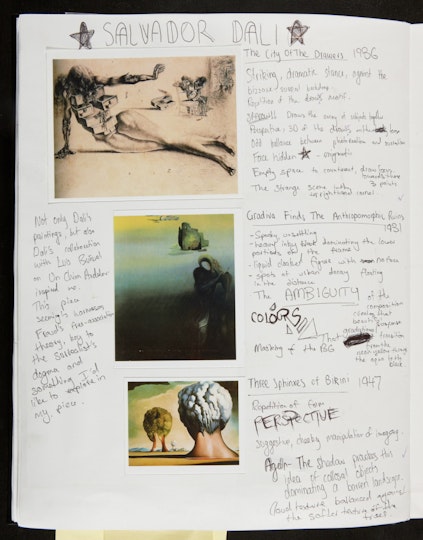 SALVADOR DALI
The City Of The Drawers 1936
Striking, dramatic stance, against the
bizarre surreal
Repetition of the draws
Draws the array of objects together
Perspective: 3D of the draws
Odd balance between
Face hidden - enigmatic
Empty space to counteract, draw focus
towards these
3 points
The strange scene in the
upright hand corner.
Not only Dali's
paintings, but also
Dali's collaboration
with Luis Buñuel
on Un Chien Andalou
inspired me.
This piece
Freud's free-association
theory, key to
the Surrealist's
dogma and
something I'd
like to explore in
my piece.
Gradiva Finds The Anthropomorphic Ruins
1931
- Spooky, unsettling
- heavy inky that dominating the lower
portrait of the frame
- liquid cloaked figure with no face
- spots of urban decay floating
in the distance
The AMBIGUITY of the
composition
COLOURS
response
That
transition
from the
Masking of the
black.
Three Sphinxes of Bikini 1947
Repetition of form
PERSPECTIVE
suggestive, cheeky manipulation of imagery.
Again - The shadow provokes this
idea of colossal objects
dominating a barren landscape.
Cloud texture balanced against
the softer texture of the
trees